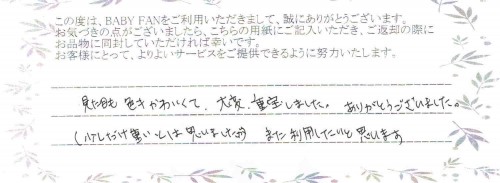 この度は、BABY FANをご利用いただきまして、誠にありがとうございます。
お気づきの点がございましたら、こちらの用紙にご記入いただき、ご返却の際に
お品物に同封していただければ幸いです。
お客様にとって、よりよいサービスをご提供できるように努力いたします。
見た目も 色も かわいくて、大変、重宝しました。 ありがとうございました。
(少しだけ重いとは 思いましたが) また利用したいと思います